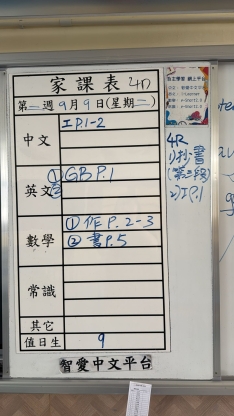 家課表 4D
第二週9月9日(星期二)
中文
工P.1-2
英文
① GB P.1
②
數學
① 作 P.2-3
② 書 P.5
常識
其它
值日生
9
智愛中文平台
4R
1)抄書
(第三段)
2)工P.1
自主學習 網上平台